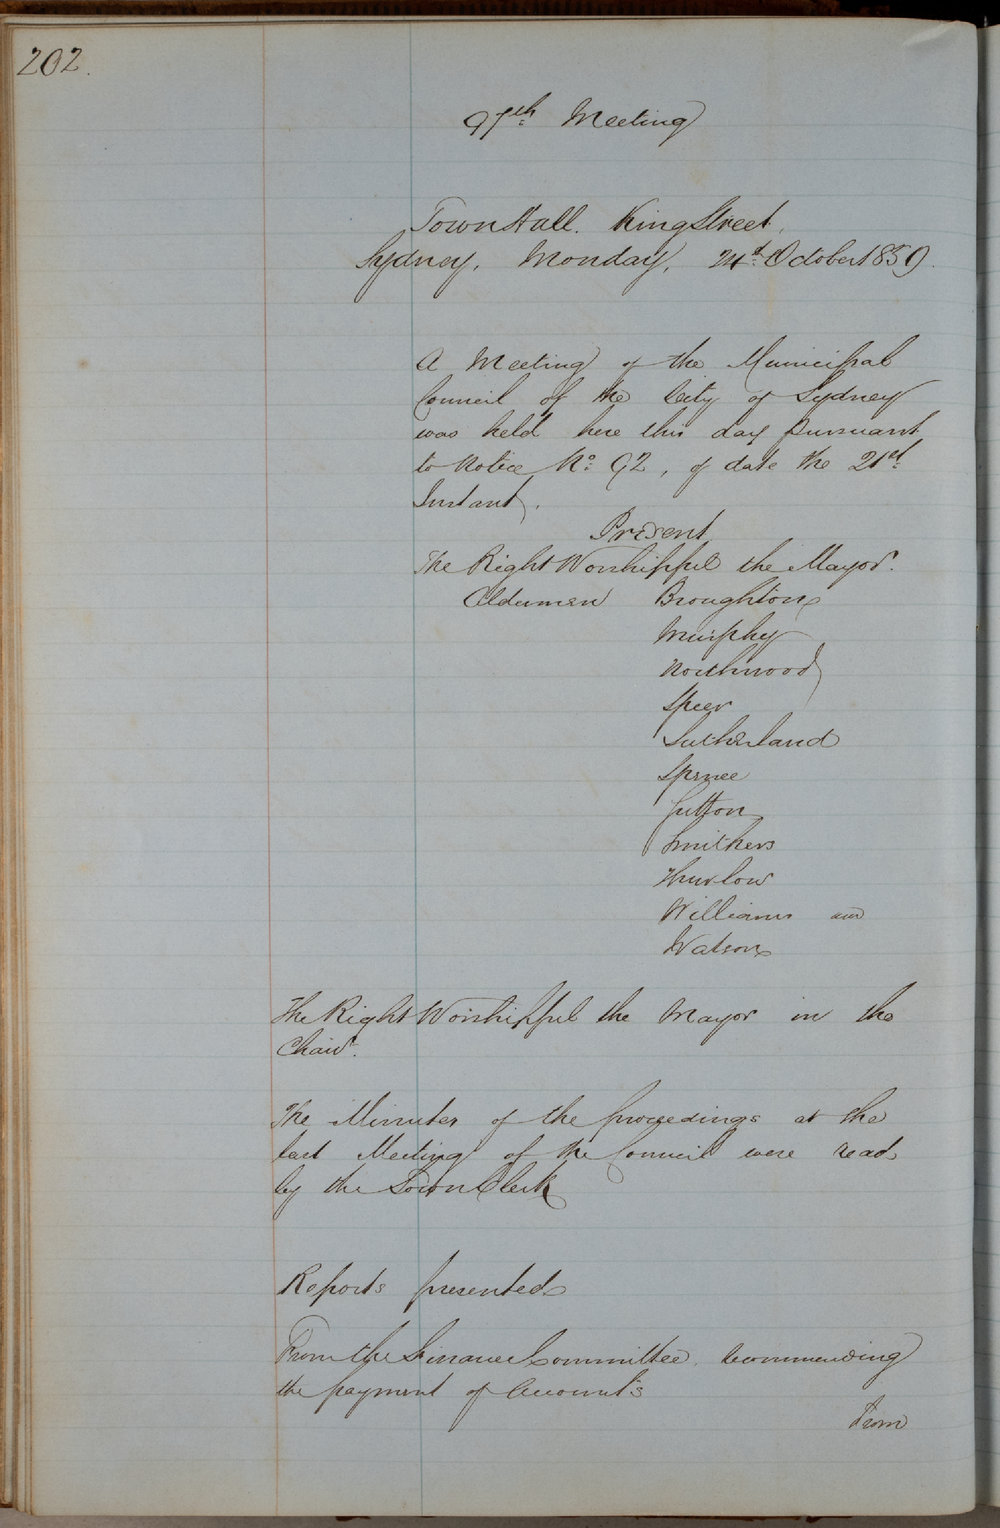 202.
97th Meeting
Town Hall. King Street,
Sydney, Monday, 24th October 1859.
A Meeting of the Municipal
Council of the City of Sydney
was held here this day pursuant
to Notice No: 92, of date the 21st
Instant.
Present
The Right Worshipful the Mayor.
Aldermen Broughton
Murphy
Northwood
Speer
Sutherland
Spruce
Sutton
Smithers
Thurlow
Williams and
Watson
The Right Worshipful the Mayor in the
Chair.
The Minutes of the proceedings at the
last Meeting of the Council were read
by the Town Clerk
Reports presented
From the Finance Committee, recommending
the payment of Accounts
From